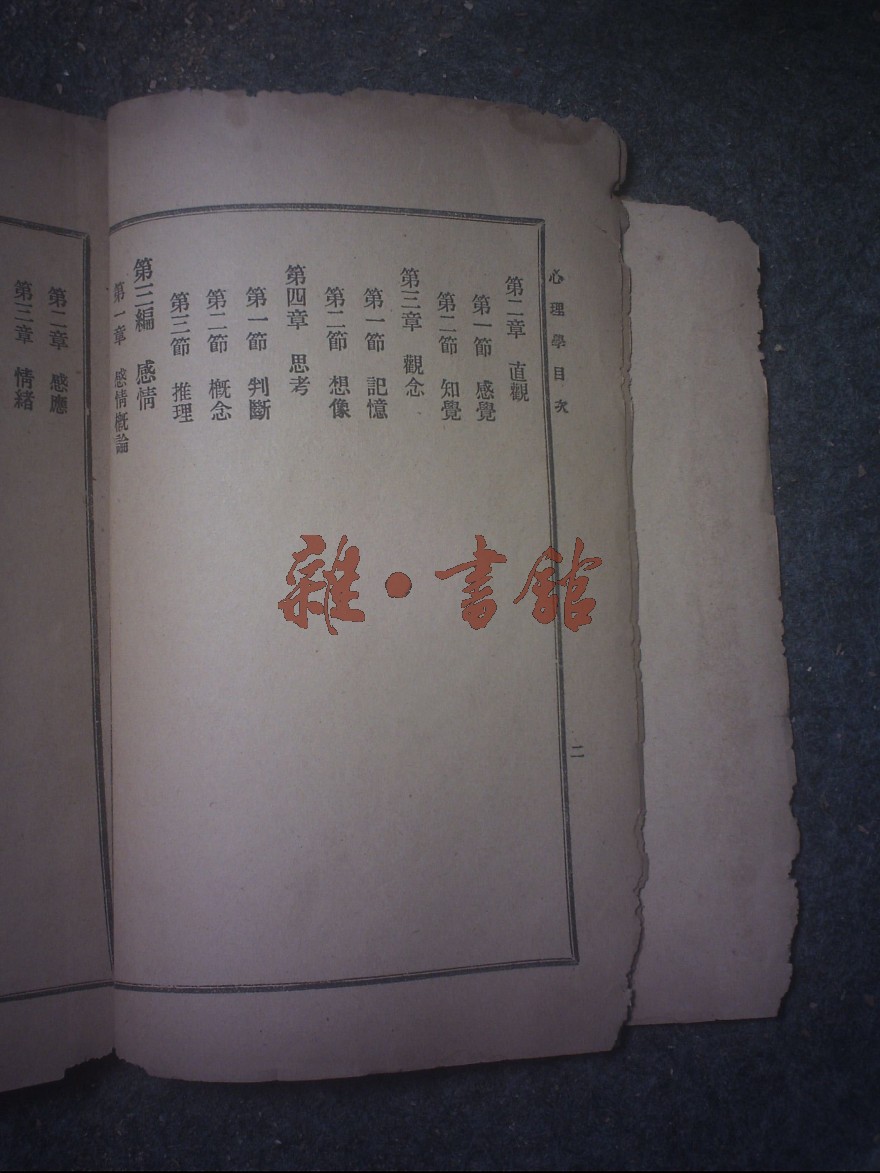 心理學目次
第二章 直觀
第一節 感覺
第二節 知覺
第三章 觀念
第一節 記憶
第二節 想像
第四章 思考
第一節 判斷
第二節 概念
第三節 推理
第三編 感情
第一章 感情概論
二
第二章 感應
第三章 情緒
雜·書館